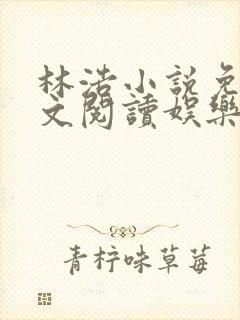 林浩小說免
文閱讀娛樂
青柠味草莓